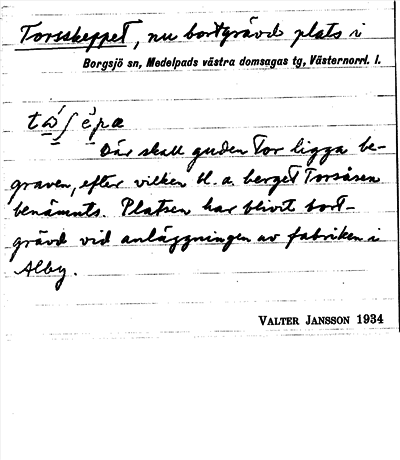 Torsskeppet, nu bortgrävd plats i
Borgsjö sn, Medelpads västra domsagas tg, Västernorrl. l.
Där skall guden Tor ligga be-
graven, efter vilken bl. a. berget Torsåsen
benämnts. Platsen har blivit bort-
grävd vid anläggningen av fabriken i
Alby.
VALTER JANSSON 1934